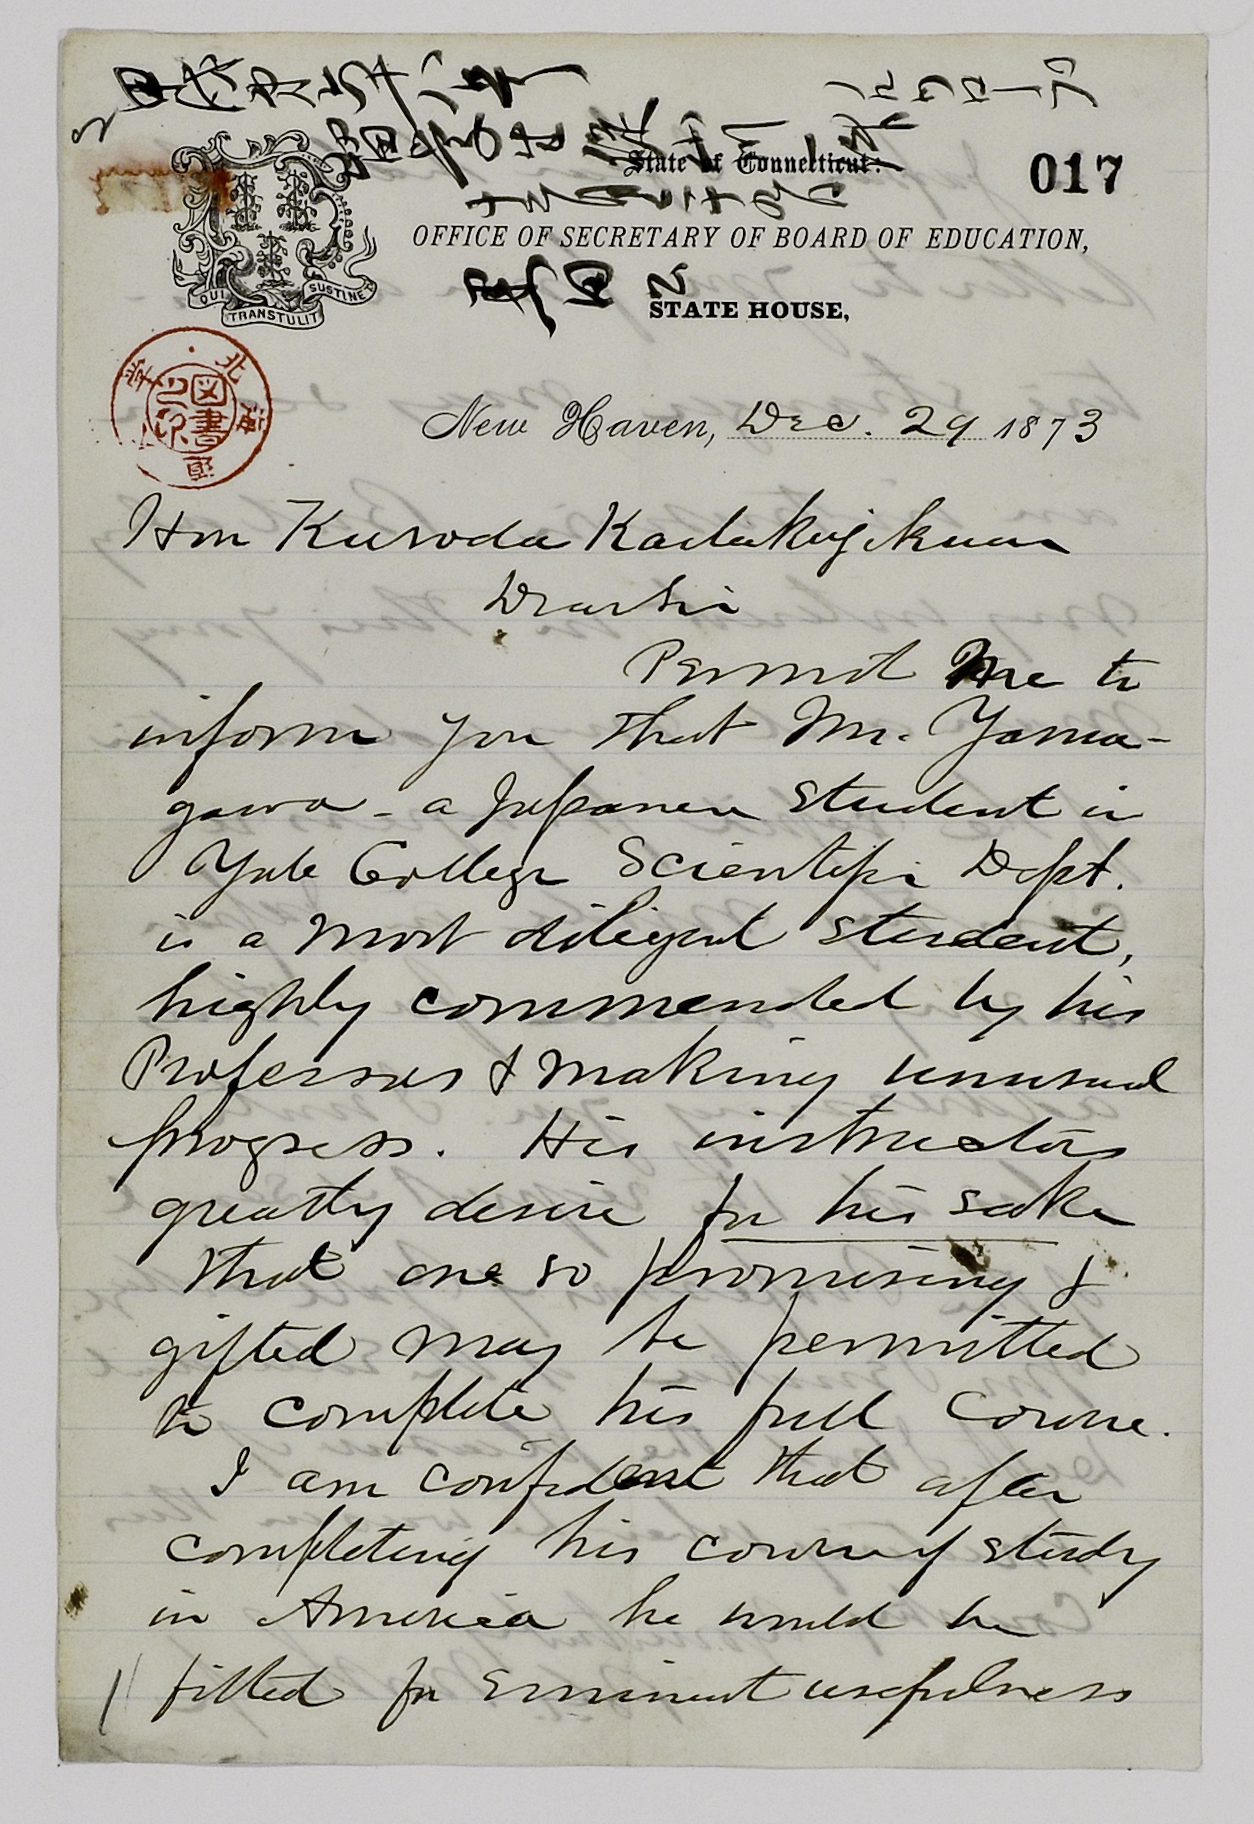 State of Connecticut.
017
OFFICE OF SECRETARY OF BOARD OF EDUCATION,
STATE HOUSE,
QUI TRANSTULIT SUSTINET
図書之印
New Haven, Dec. 29 1873
Hon Kuroda
Dear Sir
Permit Me to
inform you that Mr. Yama-
gawa - a Japanese student in
Yale College Scientific Dept.
is a most diligent student,
highly commended by his
Professors & making unusual
progress. His instructors
greatly desire for his sake
that one so promising &
gifted may be permitted
to complete his full course.
I am confident that after
completing his course of study
in America he would be
fitted for eminent usefulness